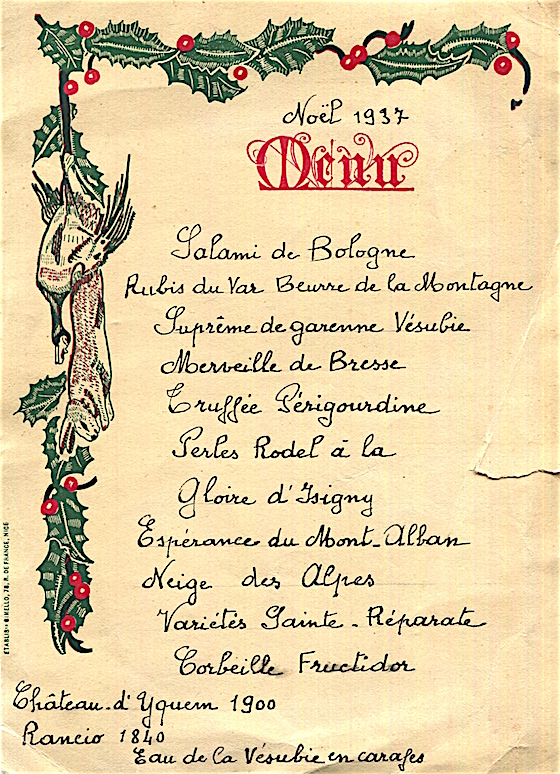 Noël 1937
Menu
Salami de Bologne
Rubis du Var Beurre de la Montagne
Suprême de garenne Vésubie
Merveille de Bresse
Truffée Périgourdine
Perles Rodel à la
Gloire d'Isigny
Espérance du Mont-Alban
Neige des Alpes
Variétés Sainte-Réparate
Corbeille Fructidor
Château-d'Yquem 1900
Rancio 1840
Eau de la Vésubie en carafes
ÉTABLISts GIMELLO, 78, R. DE FRANCE, NICE